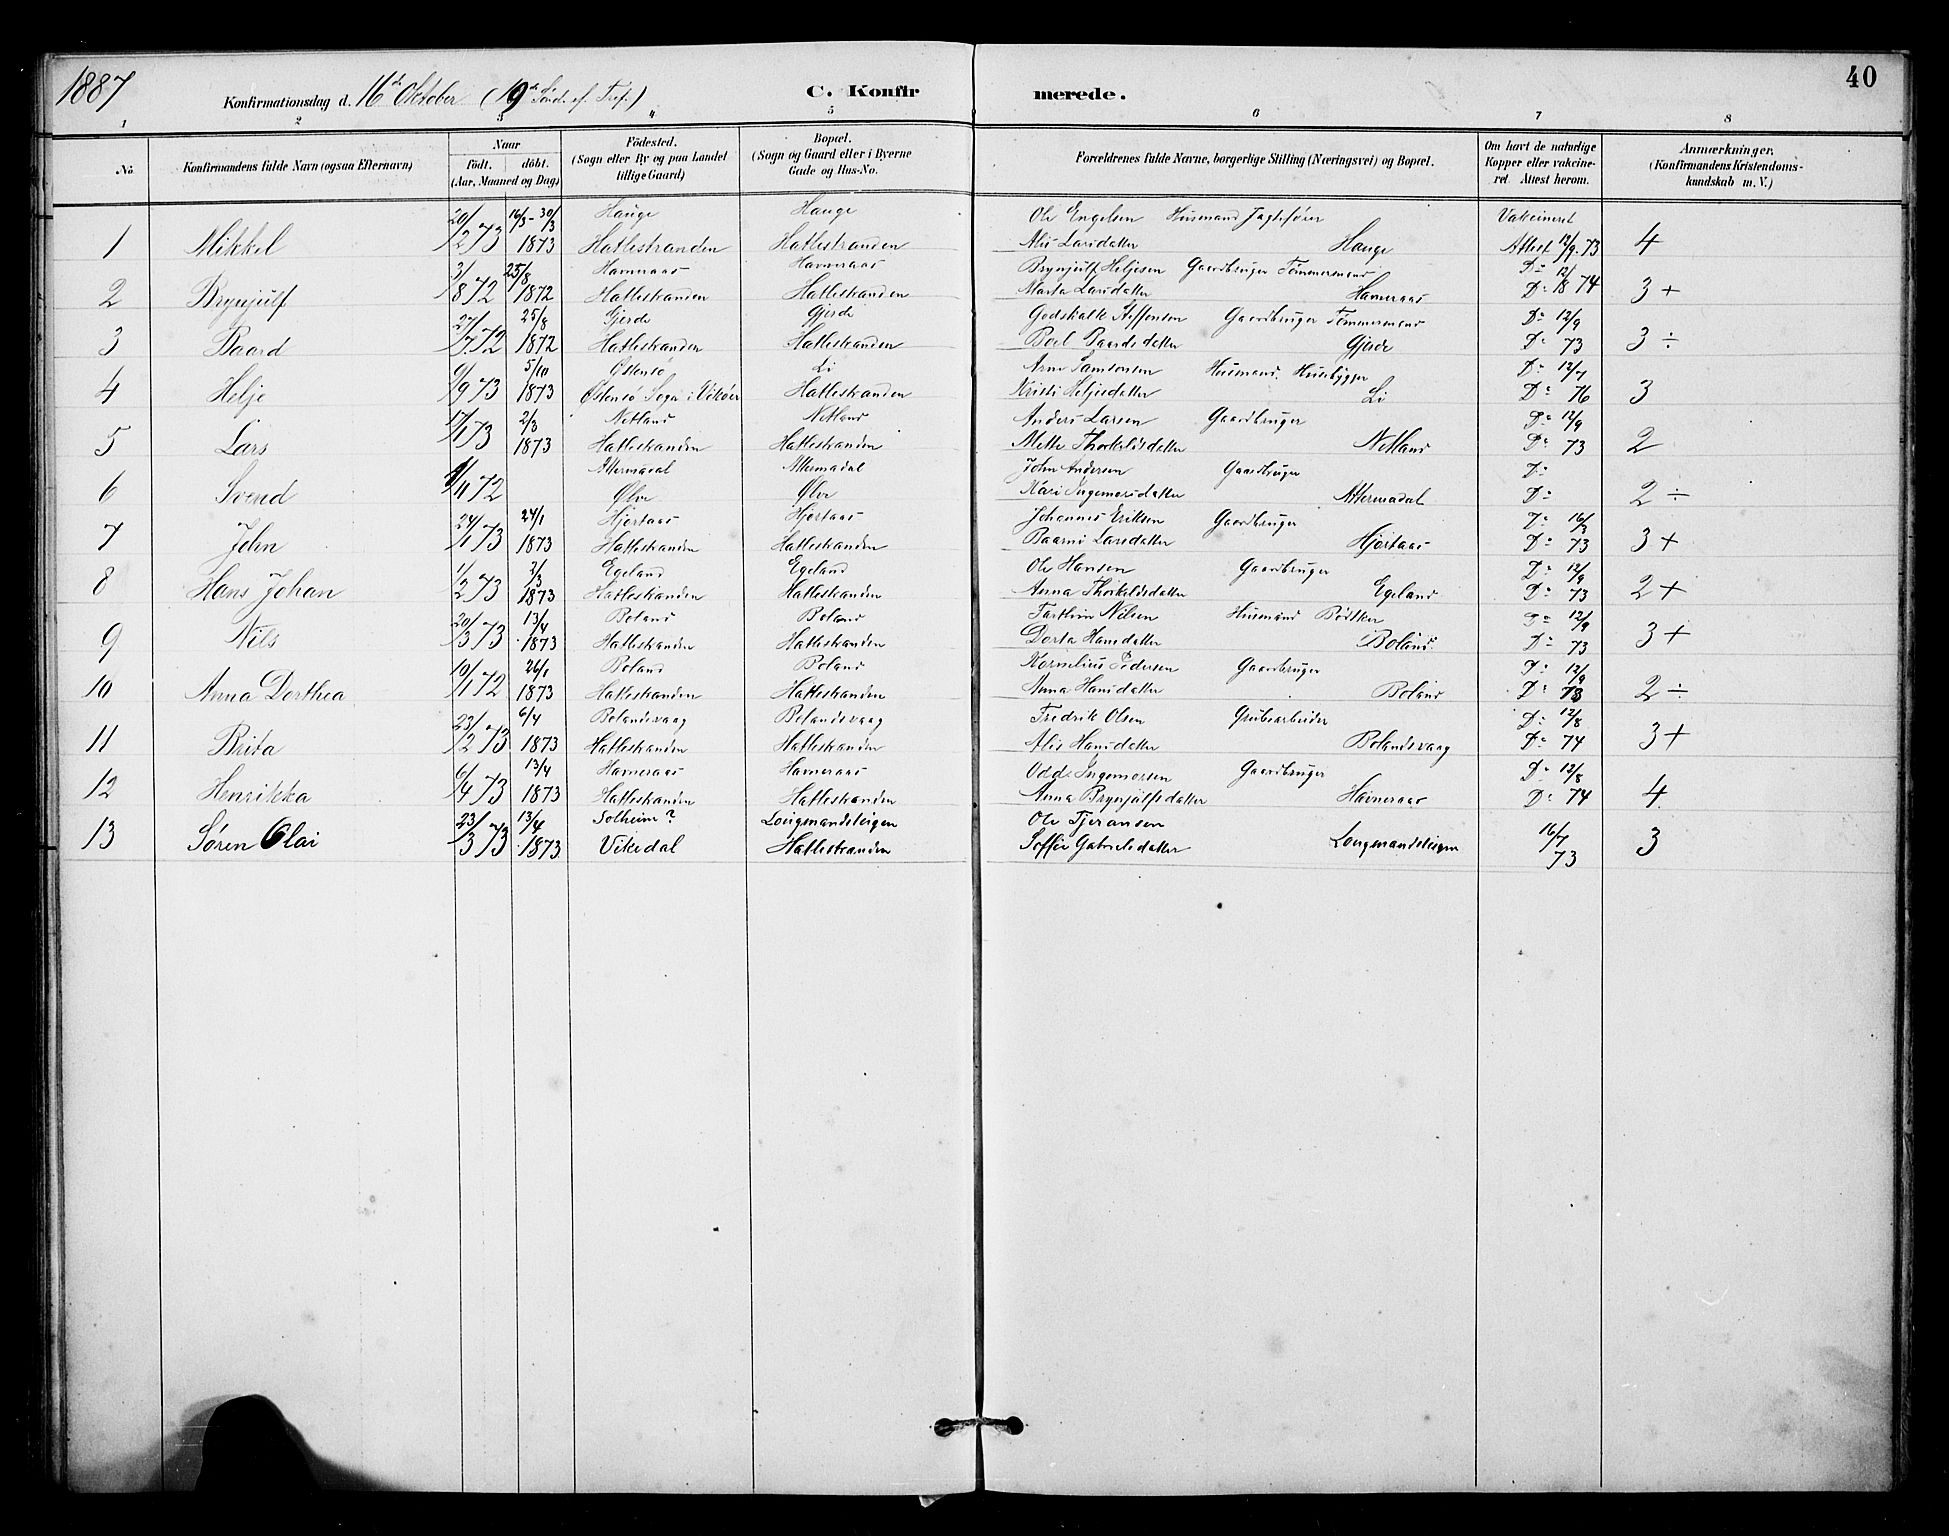 1887
Konfirmationsdag d. 16de Oktober (19de Sønd. ef. Tref.) C. Konfir merede. 40
1 2 3 4 5 6 7 8
No. Konfirmandens fulde Navn (ogsaa Efternavn) Naar født. døbt. (Aar, Maaned og Dag) Fødested. (Sogn eller By og paa Landet tillige Gaard) Bopæl. (Sogn og Gaard eller i Byerne Gade og Hus-No. Forældrenes fulde Navne, borgerlige Stilling (Næringsvei) og Bopæl. Om havt de naturlige Kopper eller vakcineret. Attest herom. Anmærkninger, (Konfirmandens Kristendomskundskab m. V.)
20/ 16/3-30/3 Hauge Hauge Ole Engelsen Husmand Jagtefører Vakcineret
1 Mikkel 2 73 1873 Hatlestranden Hatlestranden Alis Larsdatter Hauge Attest 12/9.73 4
3/ 25/8 Havneraas Havneraas Brynjulf Heljesen Gaardbruger Tømmermand Do 12/
2 Brynjulf 8 72 1872 Hatlestranden Hatlestranden Marta Larsdatter Havneraas Do 18 74 3 +
27/ 25/8 Gjerde Gjerde Godskalk Steffensen Gaardbruger Tømmermand Do 12/9
3 Baard 7 72 1872 Hatlestranden Hatlestranden Boel Baardsdatter Gjerde Do 73 3 ÷
9/ 5/10 Østensø Li Arne Samsonsen Husmand. Husbygger Do 12/7
4 Helje 9 73 1873 Østensø Sogn i Vikøer Hatlestranden Kristi Heljesdatter Li Do 76 3
17/ 2/3 Netland Netland Anders Larsen Gaardbruger Do 12/9
5 Lars 1 73 1873 Hatlestranden Hatlestranden Mette Thorkeldsdatter Netland Do 73 2
Attermadal Attermadal John Andersen Gaardbruger Do
6 Svend 11 72 Ølve Ølve Kari Ingemorsdatter Attermadal Do 2 ÷
24/ 24/1 Hjortaas Hjortaas Johannes Eriksen Gaardbruger Do 16/3
7 John 1 73 1873 Hatlestranden Hatlestranden Larsdatter Hjortaas Do 73 3 +
1/ 3/3 Egeland Egeland Ole Hansen Gaardbruger Do 12/9
8 Hans Johan 2 73 1873 Hatlestranden Hatlestranden Anna Thorkeldsdatter Egeland Do 73 2 +
20/ 13/4 Boland Boland Nilsen Husmand Bødtker Do 12/9
9 Nils 3 73 1873 Hatlestranden Hatlestranden Dorta Hansdatter Boland Do 73 3 +
10/ 26/1 Boland Boland Kornelius Pedersen Gaardbruger Do 12/9
10 Anna Dorthea 1 72 1873 Hatlestranden Hatlestranden Anna Hansdatter Boland Do 73 2 ÷
23/ 6/4 Bolandsvaag Bolandsvaag Fredrik Olsen Grubearbeider Do 12/8
11 Brita 2 73 1873 Hatlestranden Hatlestranden Alis Hansdatter Bolandsvaag Do 74 3 +
6/ 13/4 Havneraas Havneraas Odd Ingemorsen Gaardbruger Do 12/8
12 Henrikka 4 73 1873 Hatlestranden Hatlestranden Anna Brynjulfsdatter Havneraas Do 74 4
23/ 13/4 Solheim? Longmandsteigen Ole Tjeransen 16/7
13 Søren Olai 3 73 1873 Vikedal Hatlestranden Soffie Gabrielsdatter Longmandsteigen 73 3